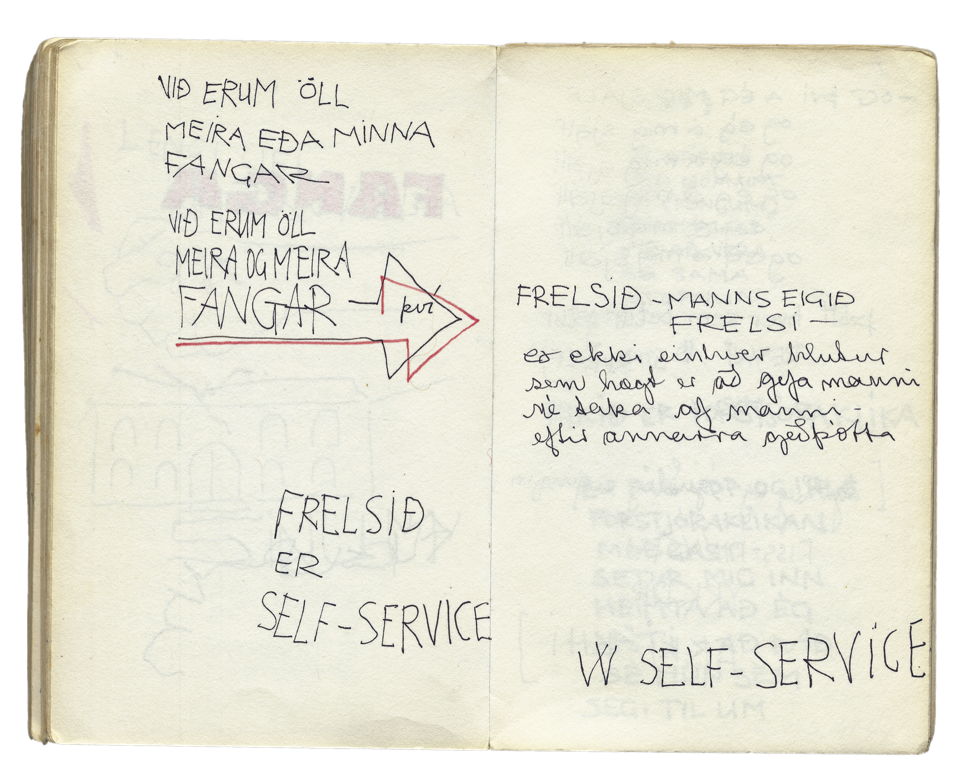 VIÐ ERUM ÖLL
MEIRA EÐA MINNA
FANGAR
VIÐ ERUM ÖLL
MEIRA OG MEIRA
FANGAR
því
FRELSIÐ
ER
SELF-SERVICE
FRELSIÐ - MANNS EIGIÐ
FRELSI -
er ekki einhver hlutur
sem hægt er að gefa manni
né taka af manni -
eftir annarra geðþótta
W SELF-SERVICE